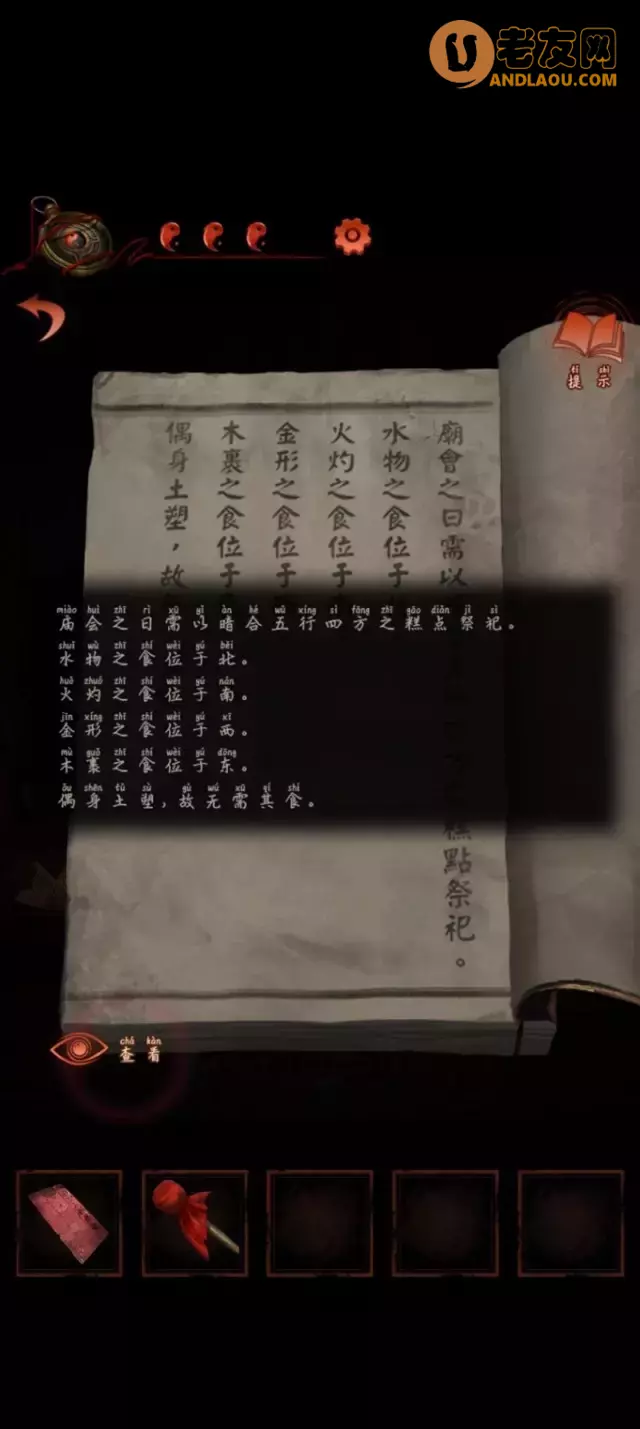 老友网
ANDLAOU.COM
tí shì
提示
廟會之日需以
糕點祭祀。
水物之食位于
火灼之食位于
金形之食位于
木裹之食位于
偶身土塑，故
miào huì zhī rì xū yǐ àn hé wǔ xíng sì fāng zhī gāo diǎn jì sì
庙会之日需以暗合五行四方之糕点祭祀。
shuǐ wù zhī shí wèi yú běi
水物之食位于北。
huǒ zhuó zhī shí wèi yú nán
火灼之食位于南。
jīn xíng zhī shí wèi yú xī
金形之食位于西。
mù guǒ zhī shí wèi yú dōng
木裹之食位于东。
ǒu shēn tǔ sù gù wú xū qí shí
偶身土塑，故无需其食。
chá kàn
查看